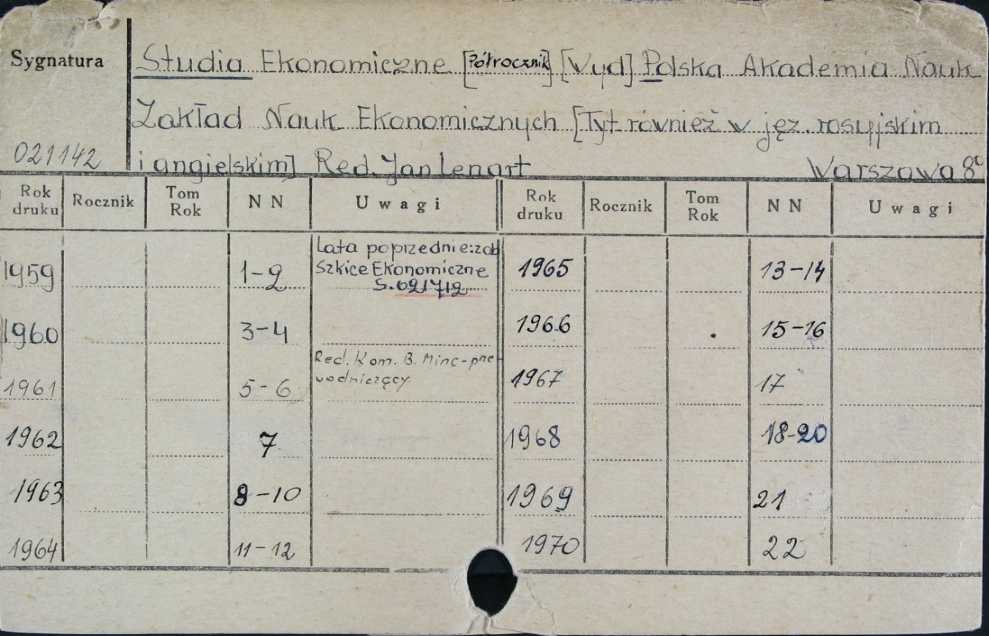 Sygnatura
Studia Ekonomiczne [Półrocznik] [Wyd] Polska Akademia Nauk
Zakład Nauk Ekonomicznych [Tyt również w jęz. rosyjskim
021142 i angielskim] Red. Jan Lenart Warszawa 8°
Rok druku Rocznik Tom Rok NN Uwagi Rok druku Rocznik Tom Rok NN Uwagi
1959 1-2 Lata poprzednie: zob Szkice Ekonomiczne S. 021712 1965 13-14
1960 3-4 1966 15-16
1961 5-6 Red. Kom. B. Minc - prze wodniczący 1967 17
1962 7 1968 18-20
1963 8-10 1969 21
1964 11-12 1970 22